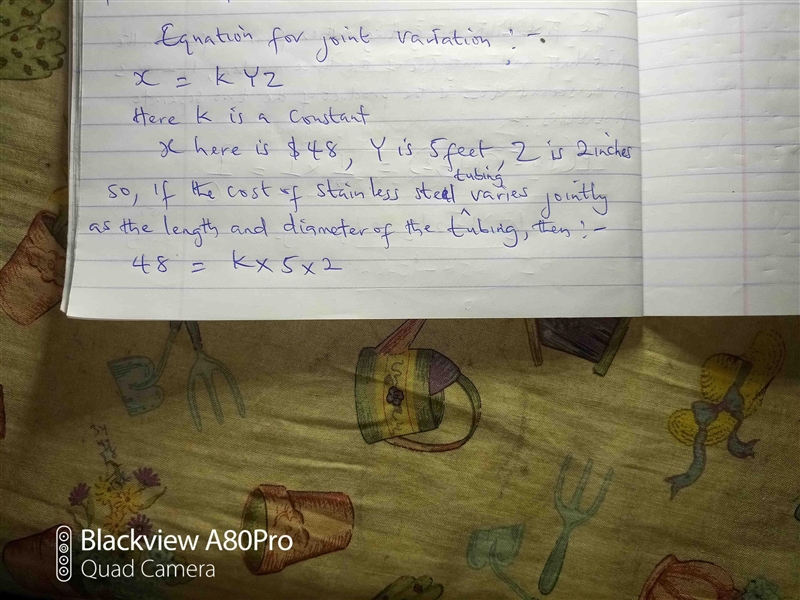 Equation for joint variation :-
x = k Y Z
Here k is a constant
x here is $48, Y is 5feet, Z is 2inches
so, if the cost of stainless steel tubing varies jointly
as the length and diameter of the tubing, then :-
48 = k x 5 x 2
Blackview A80Pro
Quad Camera